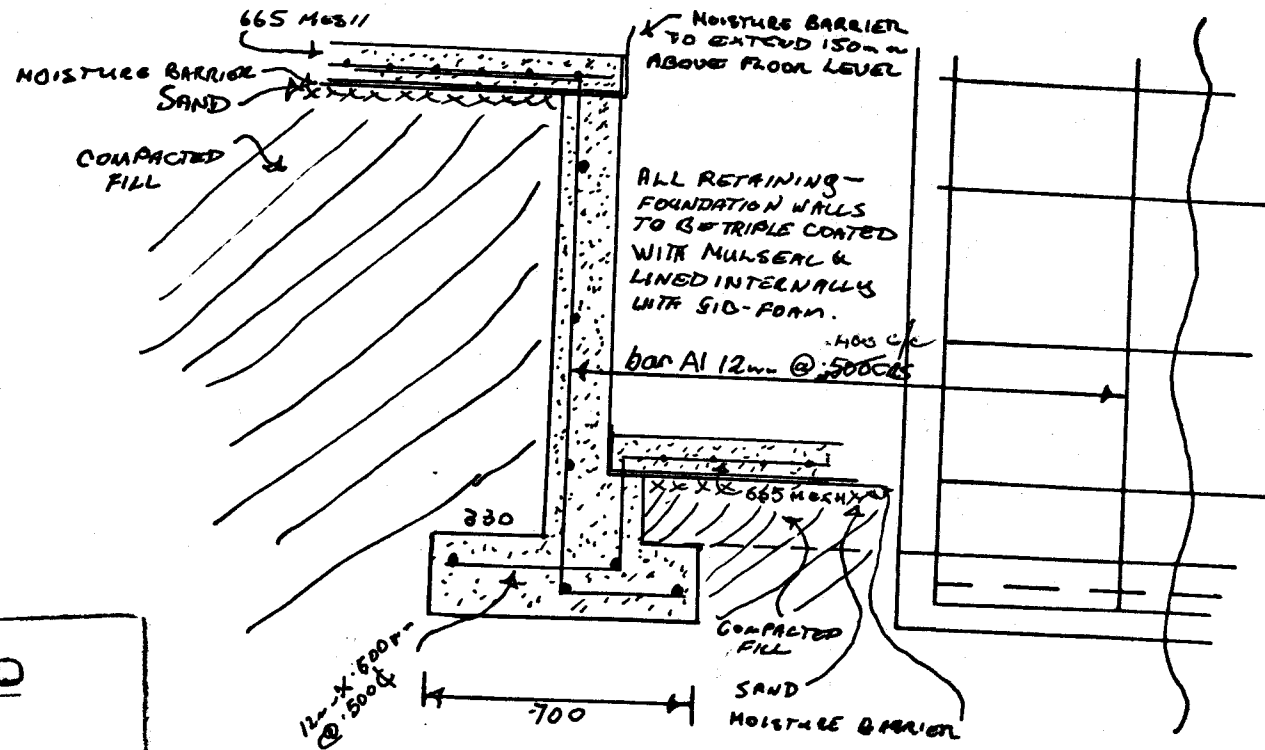 665 MESH
MOISTURE BARRIER
SAND
COMPACTED
FILL
MOISTURE BARRIER
TO EXTEND 150mm
ABOVE FLOOR LEVEL
ALL RETAINING -
FOUNDATION WALLS
TO BE TRIPLE COATED
WITH MULSEAL &
LINED INTERNALLY
WITH GIB-FOAM.
.400 c/c
bar A1 12mm @ .500CRS
665 MESH
330
COMPACTED
FILL
SAND
MOISTURE BARRIER
12mm X .600mm
@ .500
.700
D